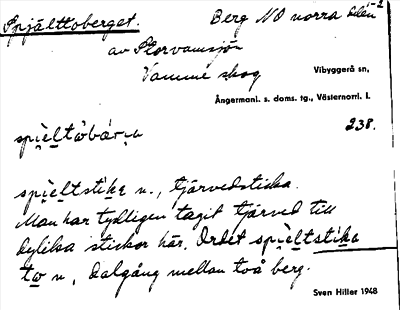 Spjälttoberget. Berg NO norra delen
av Storvamsjön
Vammé skog Vibyggerå sn,
Ångermanl. s. doms. tg., Västernorrl. l.
238.
spi̯eltobär̯a
spi̯eltstika n., tjärvedsticka.
Man har tydligen tagit tjärved till
dylika stickor här. Ordet spi̯eltstika
to n, dalgång mellan två berg.
Sven Hiller 1948